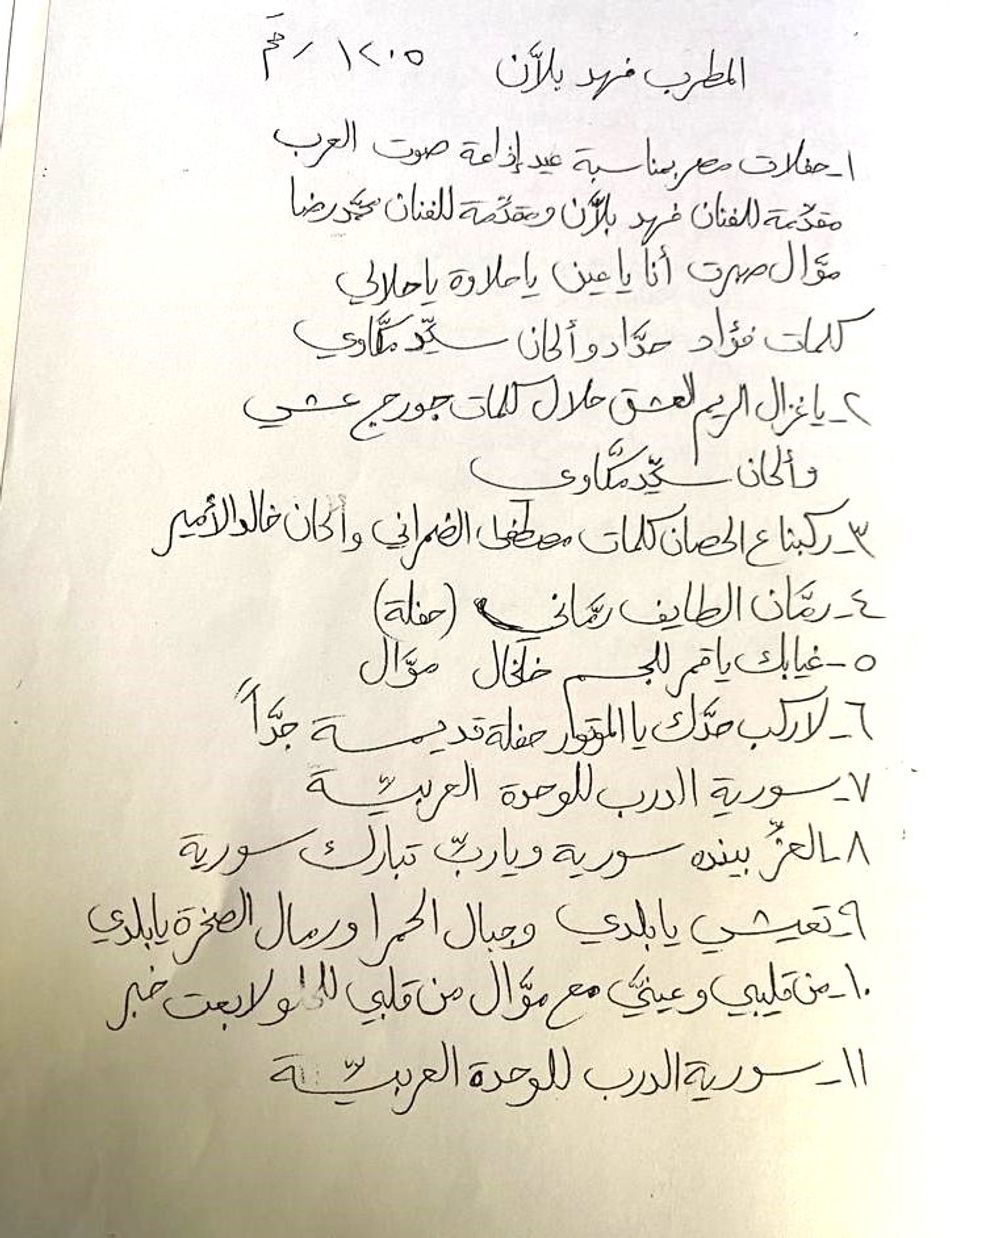 المطرب فهد بلاَّن ١٢٠٥ /
١ـ حفلات مصر بمناسبة عيد إذاعة صوت العرب
مقدّمة للفنان فهد بلاَّن ومقدّمة للفنان محمّد رضا
موَّال صبرت أنا يا عين يا حلاوة يا حلالي
كلمات فؤاد حدَّاد وألحان سيِّد مكَّاوي
٢ـ يا غزال الريم لعشق حلال كلمات جورج عشي
وألحان سيِّد مكَّاوي
٣ـ ركبنا ع الحصان كلمات مصطفى الضمراني وألحان خالد الأمير
٤ـ رمَّان الطايف رمَّاني (حفلة)
٥ـ غيابك يا قمر للجسم خلخال موَّال
٦ـ لاركب حدَّك يا الموتور حفلة قديمة جدَّاً
٧ـ سورية الدرب للوحدة العربيّة
٨ـ العزُّ بينده سورية ويا ربّ تبارك سورية
٩ـ تعيشي يا بلدي وجبال الحمرا ورمال الصخرة يا بلدي
١٠ـ من قليبي وعينيَّ مع موَّال من قلبي للحلو لابعت خبر
١١ـ سورية الدرب للوحدة العربيّة